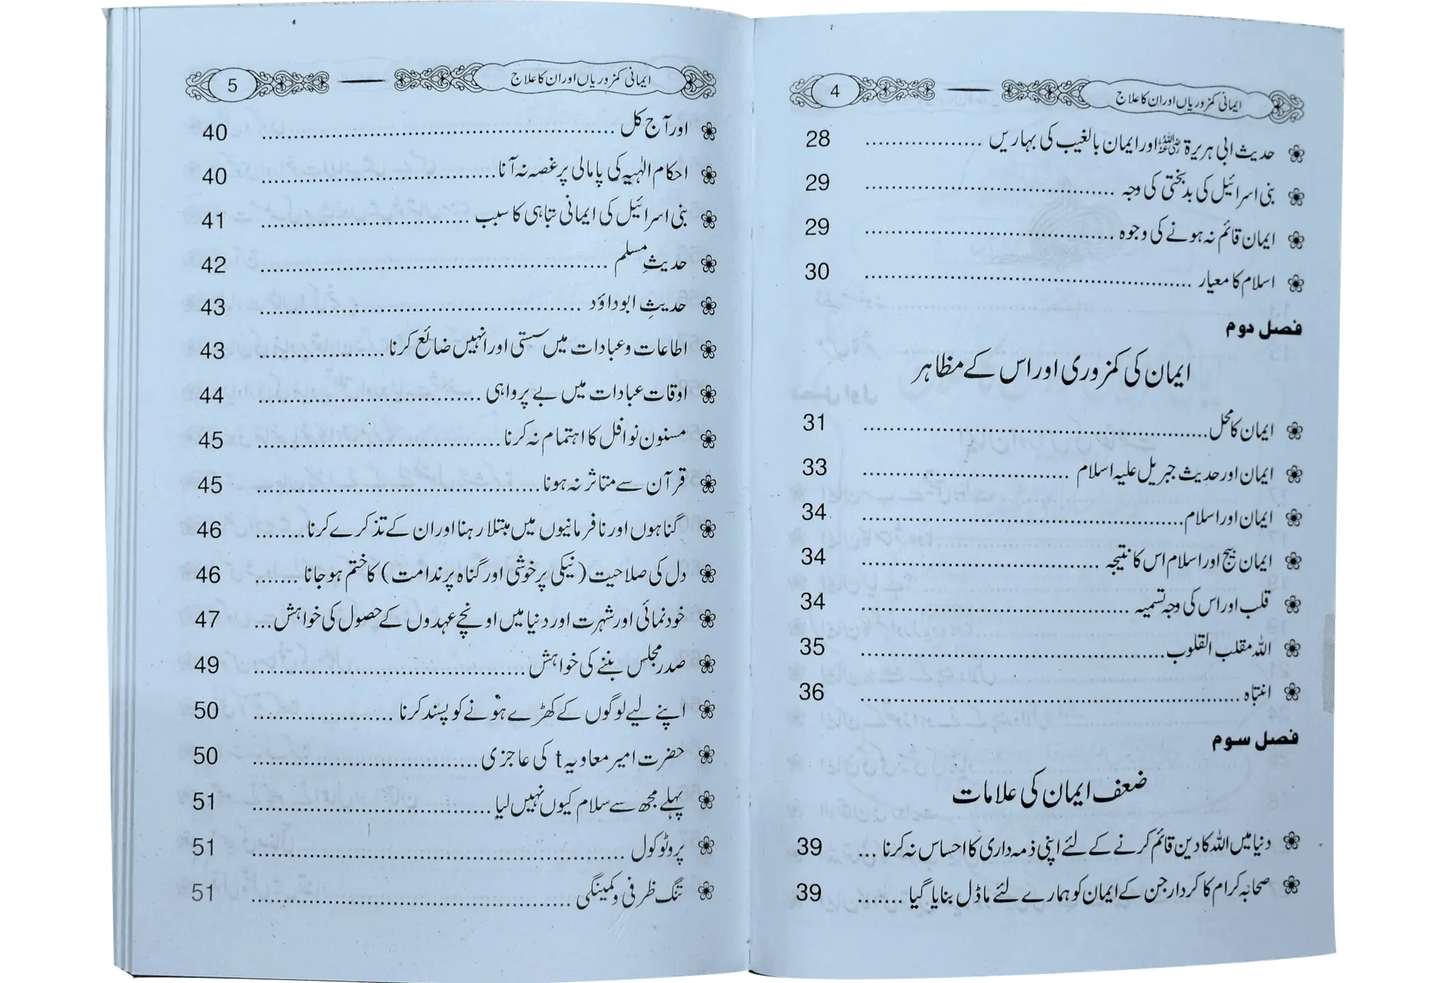 ایمانی کمزوریاں اور ان کا علاج 4
حدیث ابی ہریرۃ رضی اللہ عنہ اور ایمان بالغیب کی بہاریں ................ 28
بنی اسرائیل کی بدبختی کی وجہ ................ 29
ایمان قائم نہ ہونے کی وجوہ ................ 29
اسلام کا معیار ................ 30
فصل دوم
ایمان کی کمزوری اور اس کے مظاہر
ایمان کا محل ................ 31
ایمان اور حدیث جبریل علیہ اسلام ................ 33
ایمان اور اسلام ................ 34
ایمان بیج اور اسلام اس کا نتیجہ ................ 34
قلب اور اس کی وجہ تسمیہ ................ 34
اللہ مقلب القلوب ................ 35
انتباہ ................ 36
فصل سوم
ضعف ایمان کی علامات
دنیا میں اللہ کا دین قائم کرنے کے لئے اپنی ذمہ داری کا احساس نہ کرنا ... 39
صحابہ کرام کا کردار جن کے ایمان کو ہمارے لئے ماڈل بنایا گیا ....... 39
ایمانی کمزوریاں اور ان کا علاج 5
اور آج کل ................ 40
احکام الٰہیہ کی پامالی پر غصہ نہ آنا ................ 40
بنی اسرائیل کی ایمانی تباہی کا سبب ................ 41
حدیثِ مسلم ................ 42
حدیثِ ابوداؤد ................ 43
اطاعات و عبادات میں سستی اور انہیں ضائع کرنا ................ 43
اوقات عبادات میں بے پرواہی ................ 44
مسنون نوافل کا اہتمام نہ کرنا ................ 45
قرآن سے متاثر نہ ہونا ................ 45
گناہوں اور نافرمانیوں میں مبتلا رہنا اور ان کے تذکرے کرنا ........ 46
دل کی صلاحیت (نیکی پر خوشی اور گناہ پر ندامت) کا ختم ہو جانا ........ 46
خودنمائی اور شہرت اور دنیا میں اونچے عہدوں کے حصول کی خواہش ... 47
صدر مجلس بننے کی خواہش ................ 49
اپنے لیے لوگوں کے کھڑے ہونے کو پسند کرنا ................ 50
حضرت امیر معاویہ t کی عاجزی ................ 50
پہلے مجھ سے سلام کیوں نہیں لیا ................ 51
پروٹوکول ................ 51
تنگ ظرفی و کمینگی ................ 51